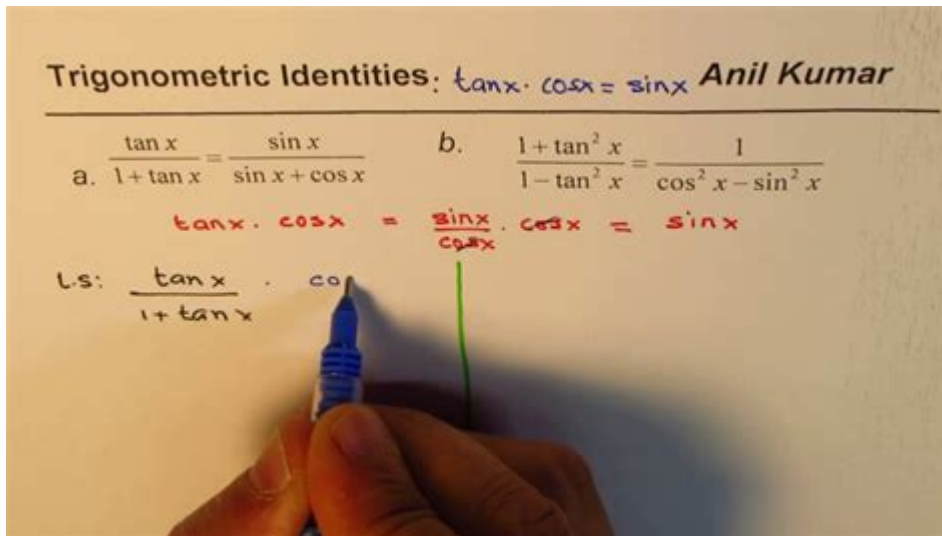 Trigonometric Identities: tanx · cosx = sinx Anil Kumar
a. tan x / (1 + tan x) = sin x / (sin x + cos x) b. (1 + tan² x) / (1 − tan² x) = 1 / (cos² x − sin² x)
tanx · cosx = sinx / cosx · cosx = sinx
L.S: tan x / (1 + tan x) · co